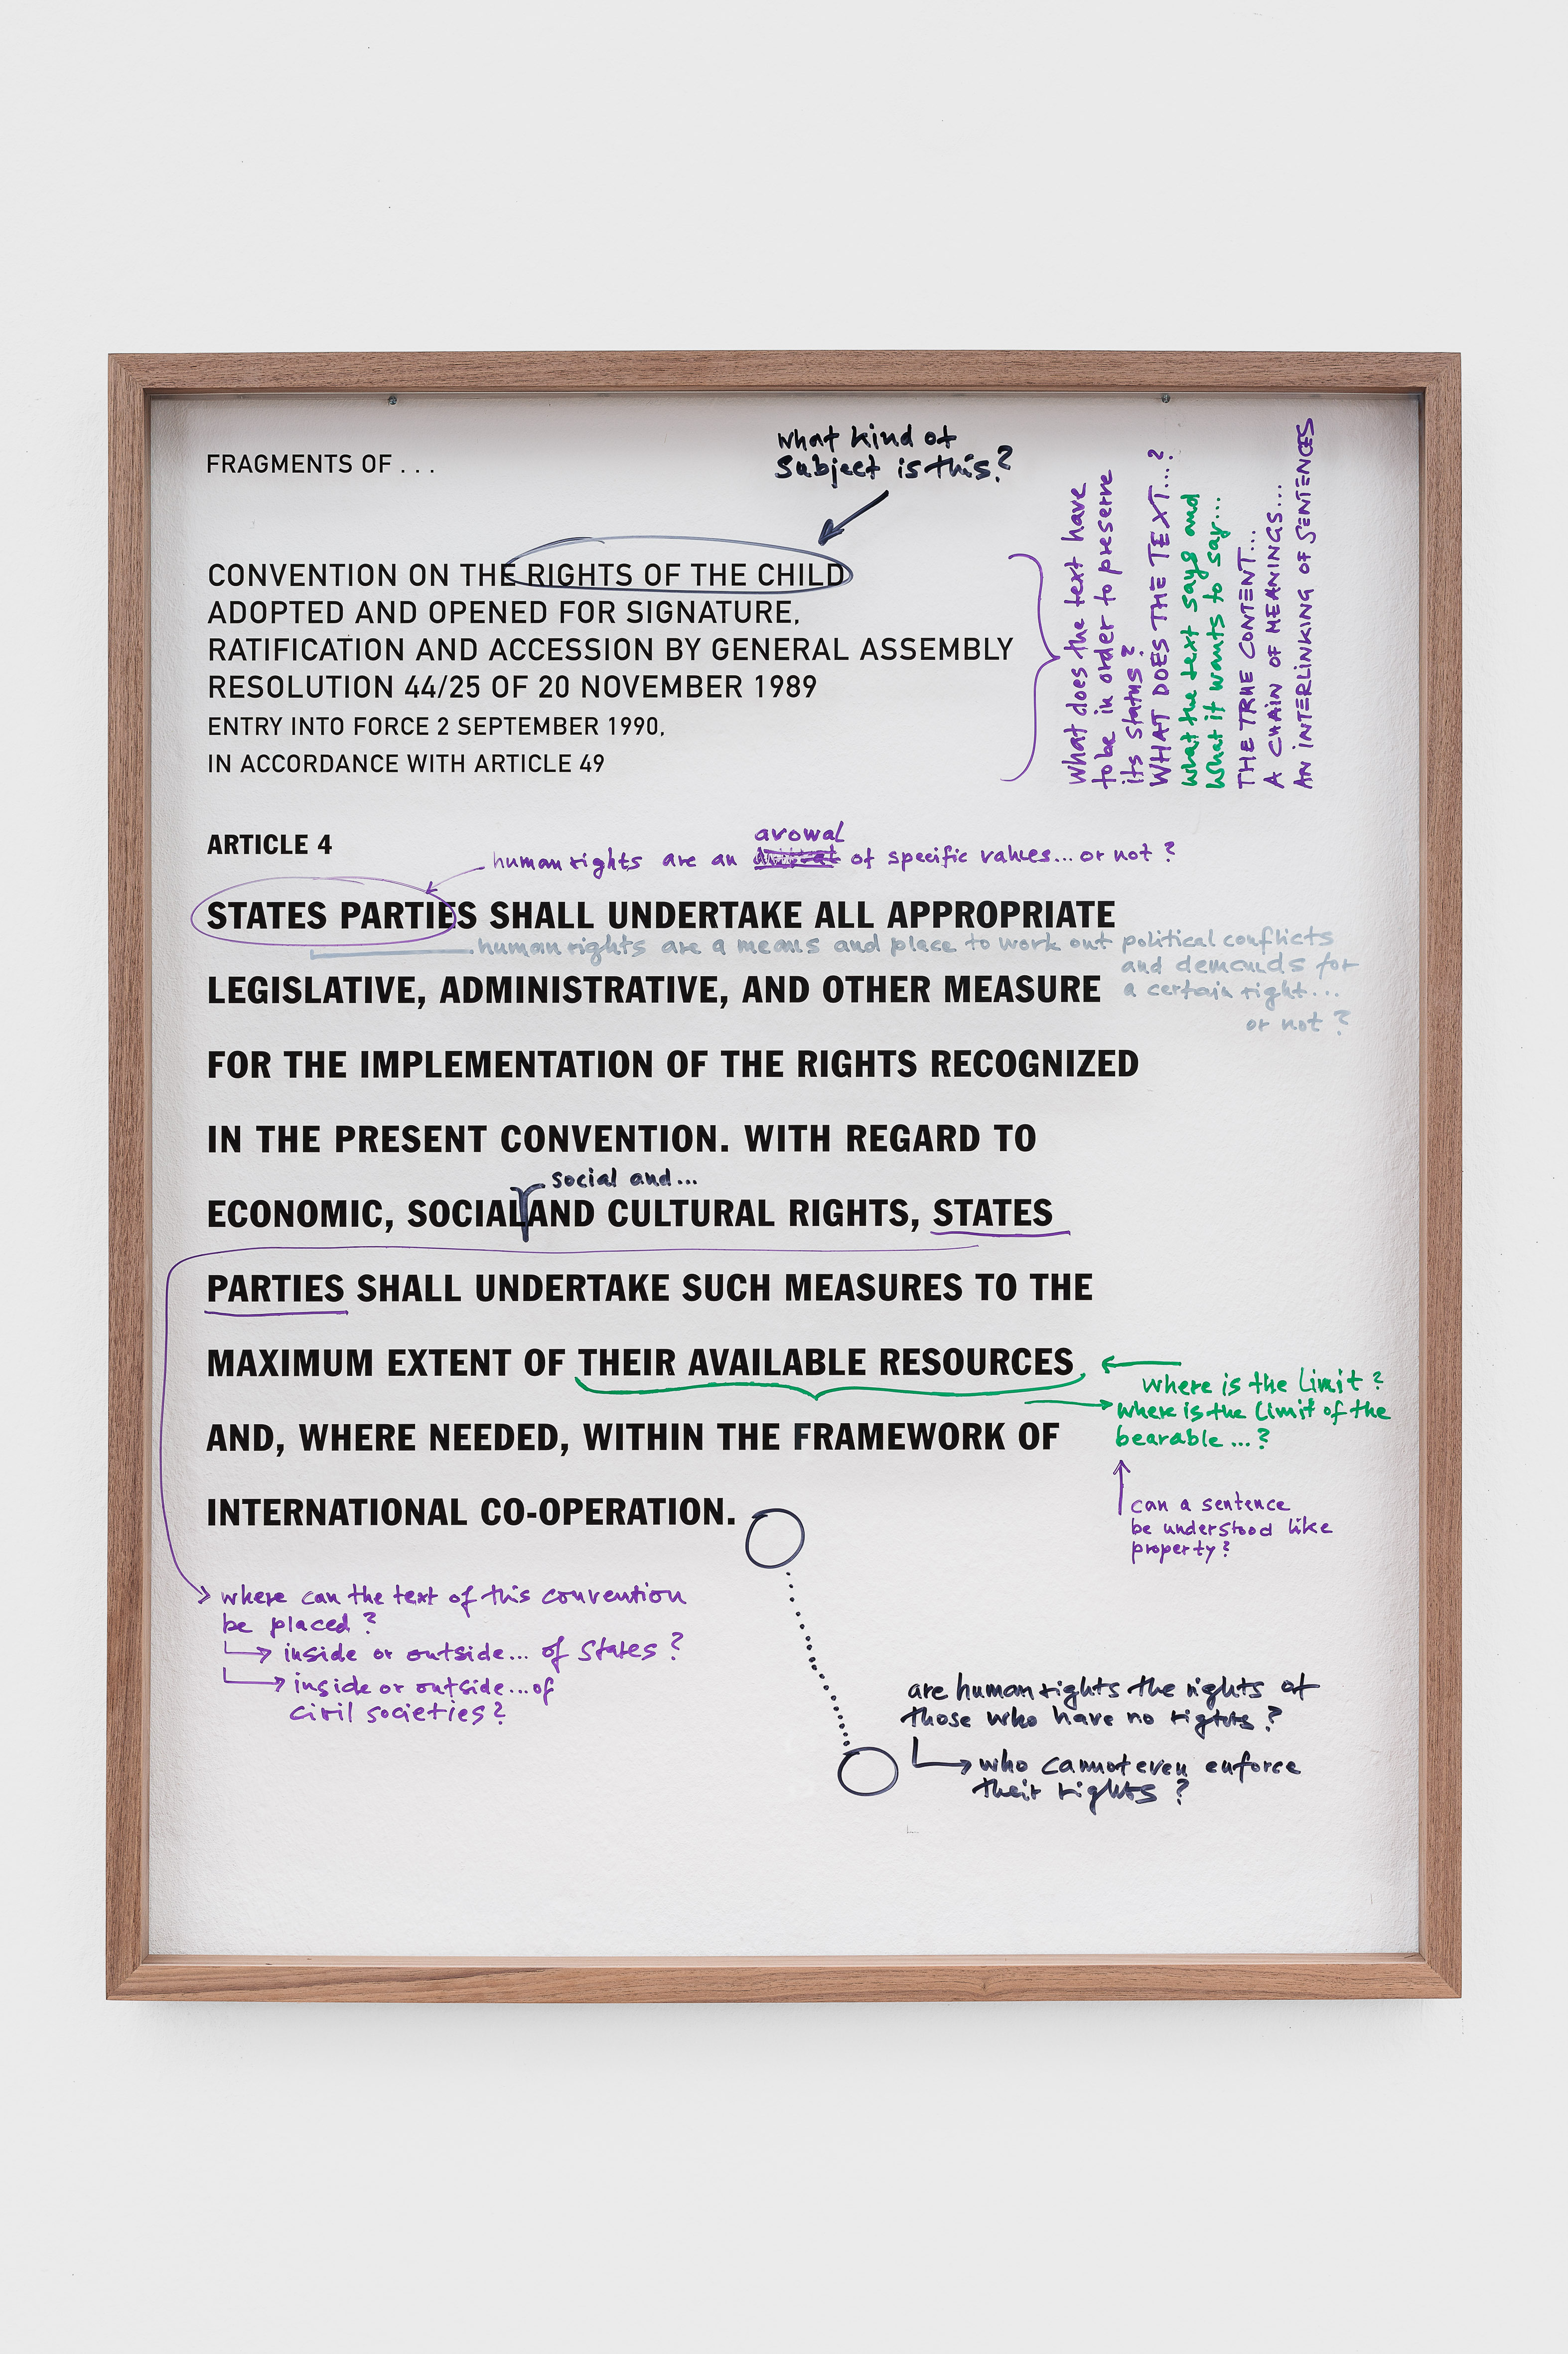 FRAGMENTS OF . . .
what kind of
subject is this?
CONVENTION ON THE RIGHTS OF THE CHILD
ADOPTED AND OPENED FOR SIGNATURE,
RATIFICATION AND ACCESSION BY GENERAL ASSEMBLY
RESOLUTION 44/25 OF 20 NOVEMBER 1989
ENTRY INTO FORCE 2 SEPTEMBER 1990,
IN ACCORDANCE WITH ARTICLE 49
what does the text have
to be in order to preserve
its status?
WHAT DOES THE TEXT...?
what the text says and
what it wants to say...
THE TRUE CONTENT...
A CHAIN OF MEANINGS...
AN INTERLINKING OF SENTENCES
ARTICLE 4
avowal
human rights are an of specific values... or not?
STATES PARTIES SHALL UNDERTAKE ALL APPROPRIATE
human rights are a means and place to work out political conflicts
and demands for
a certain right...
or not?
LEGISLATIVE, ADMINISTRATIVE, AND OTHER MEASURE
FOR THE IMPLEMENTATION OF THE RIGHTS RECOGNIZED
IN THE PRESENT CONVENTION. WITH REGARD TO
social and...
ECONOMIC, SOCIAL AND CULTURAL RIGHTS, STATES
PARTIES SHALL UNDERTAKE SUCH MEASURES TO THE
MAXIMUM EXTENT OF THEIR AVAILABLE RESOURCES
where is the limit?
where is the limit of the
bearable...?
AND, WHERE NEEDED, WITHIN THE FRAMEWORK OF
INTERNATIONAL CO-OPERATION.
can a sentence
be understood like
property?
where can the text of this convention
be placed?
inside or outside... of states?
inside or outside... of
civil societies?
are human rights the rights of
those who have no rights?
who cannot even enforce
their rights?